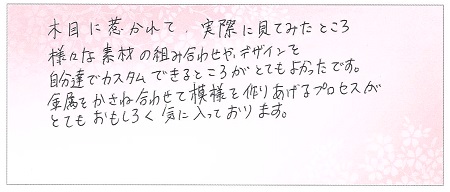 木目に惹かれて、実際に見てみたところ
様々な素材の組み合わせや、デザインを
自分達でカスタムできるところがとてもよかったです。
金属をかさね合わせて模様を作りあげるプロセスが
とてもおもしろく気に入っております。